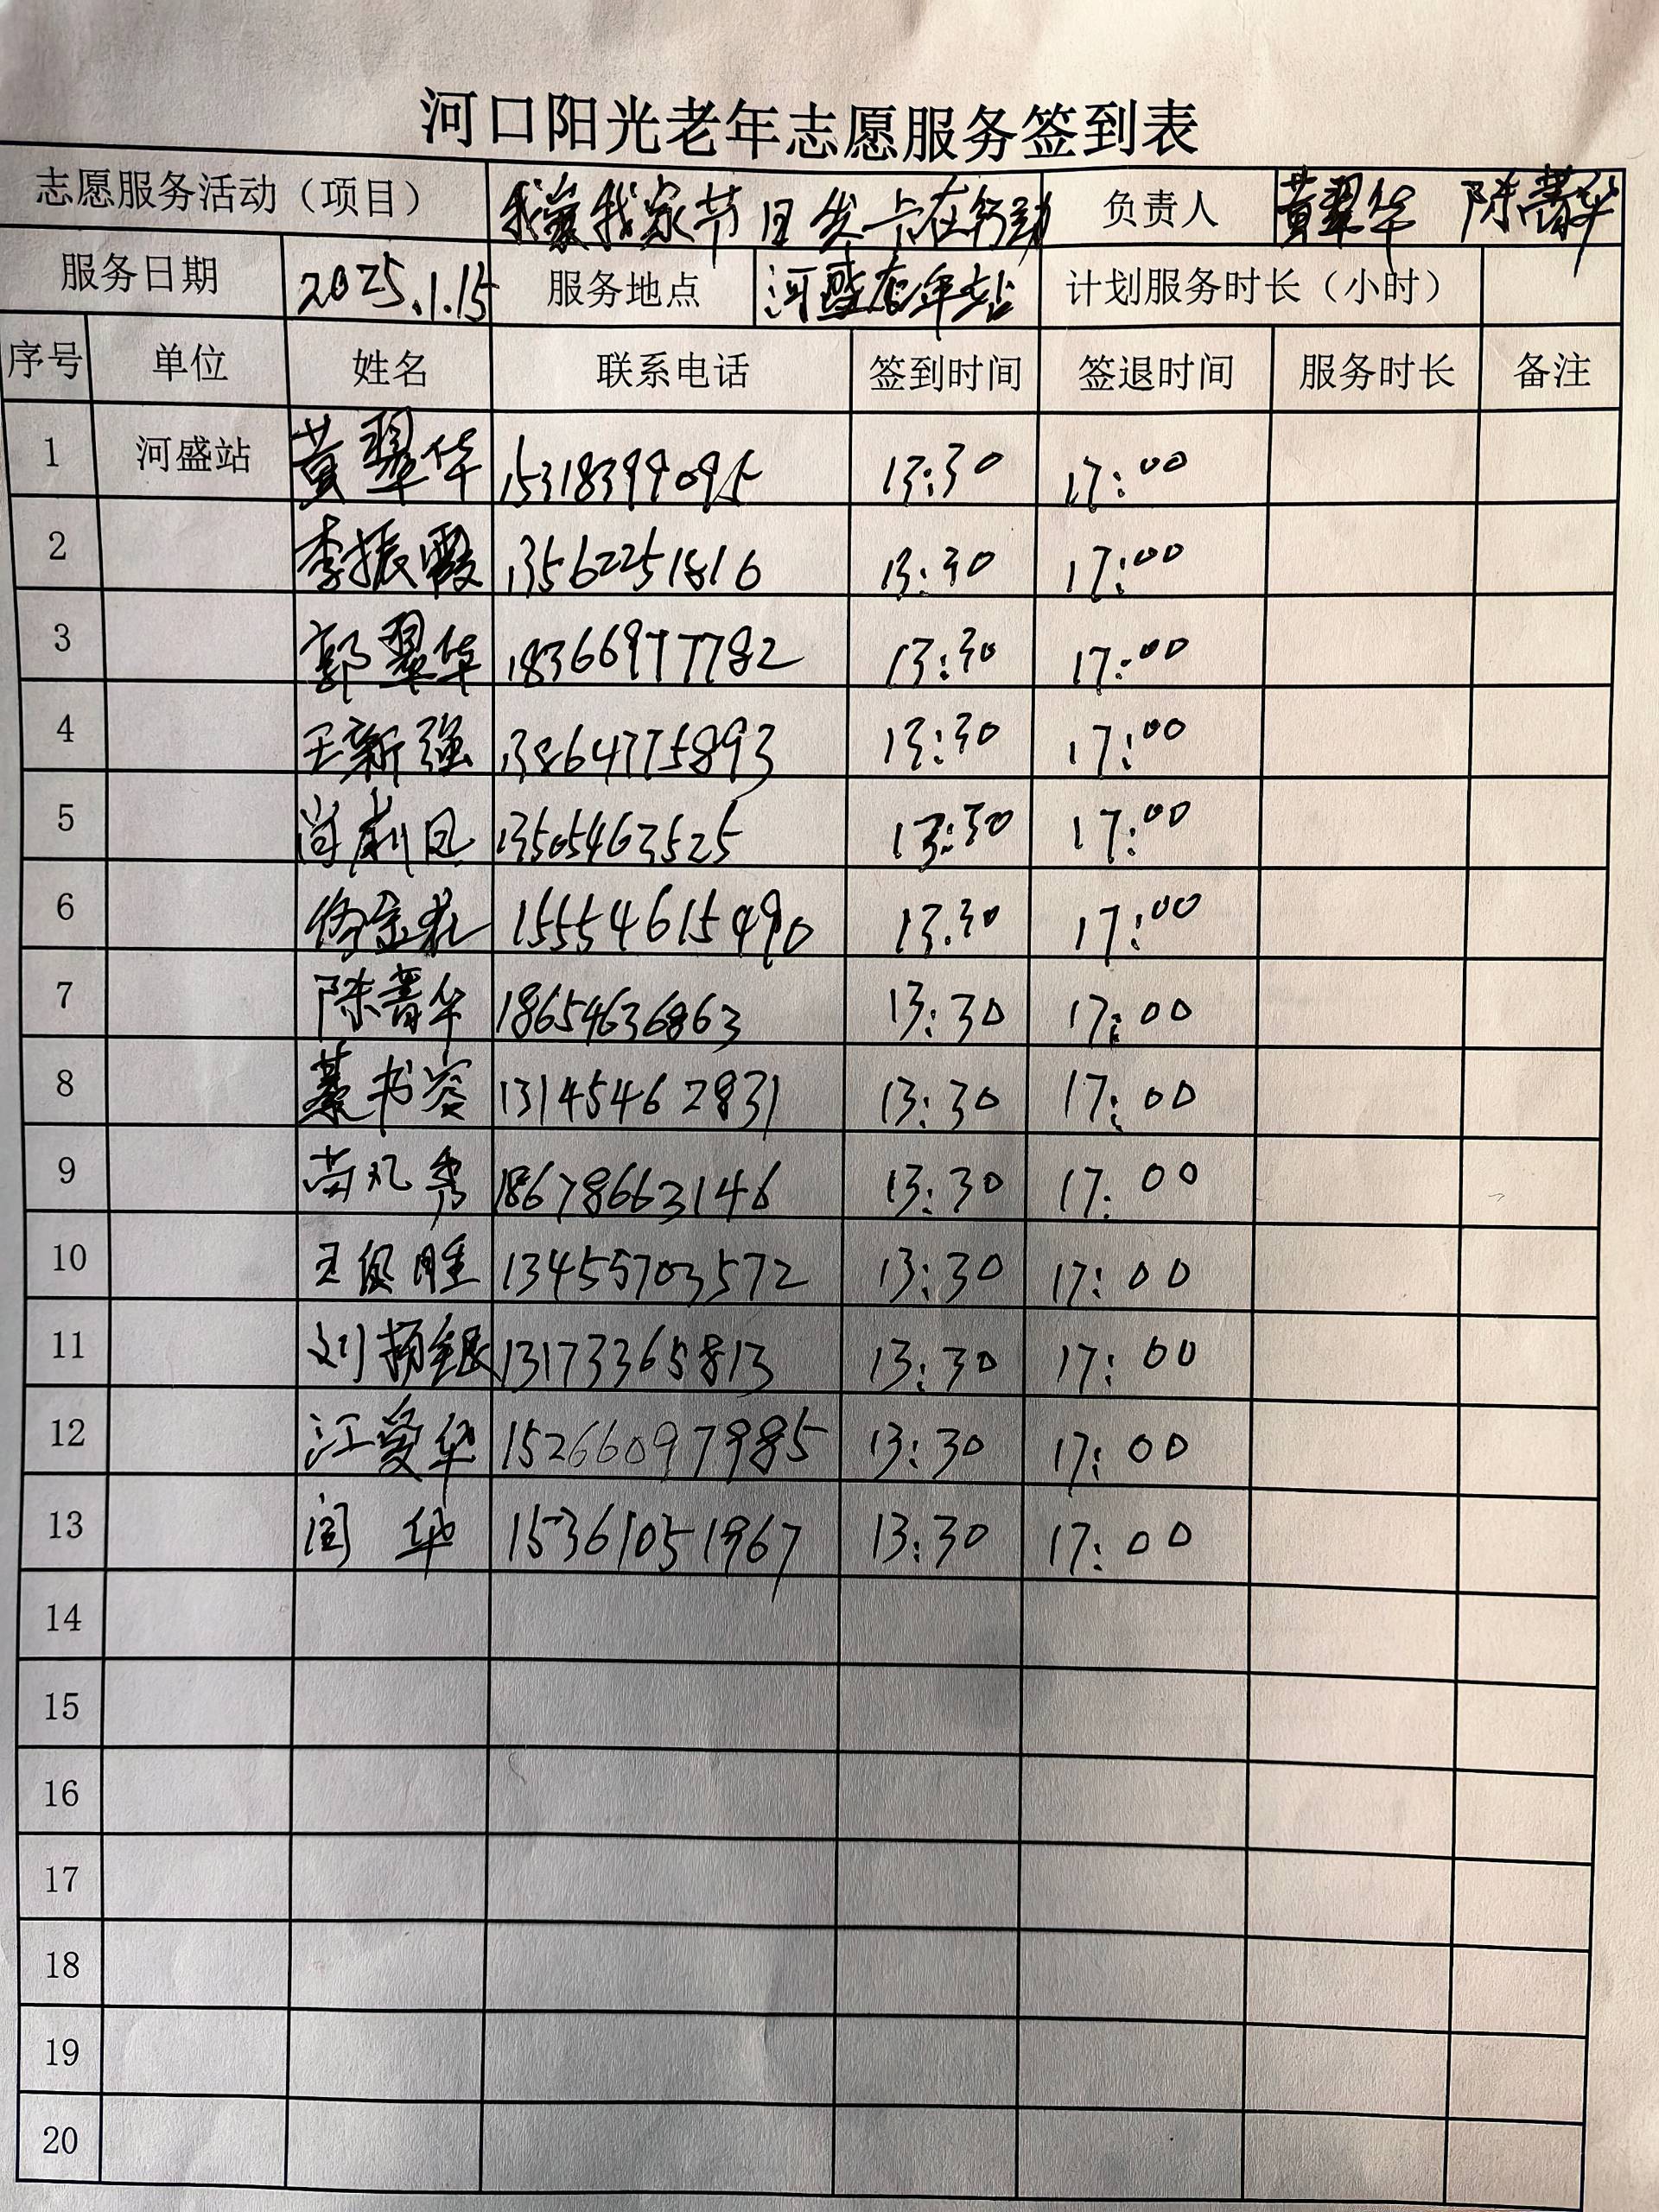 河口阳光老年志愿服务签到表
志愿服务活动（项目） 我爱我家节日发卡在行动 负责人 黄翠华 陈菁华
服务日期 2025.1.15 服务地点 河盛老年站 计划服务时长（小时）
序号 单位 姓名 联系电话 签到时间 签退时间 服务时长 备注
1 河盛站 黄翠华 15318399095 13:30 17:00
2 李振霞 13562251816 13:30 17:00
3 郭翠华 18366977782 13:30 17:00
4 王新强 13864775893 13:30 17:00
5 尚 13505463525 13:30 17:00
6 15554615490 13:30 17:00
7 陈菁华 18654636863 13:30 17:00
8 綦书容 13145462831 13:30 17:00
9 秀 18678663146 13:30 17:00
10 王俊胜 13455703572 13:30 17:00
11 刘 银 13173365813 13:30 17:00
12 江爱华 15266097985 13:30 17:00
13 闫华 15361051967 13:30 17:00
14
15
16
17
18
19
20